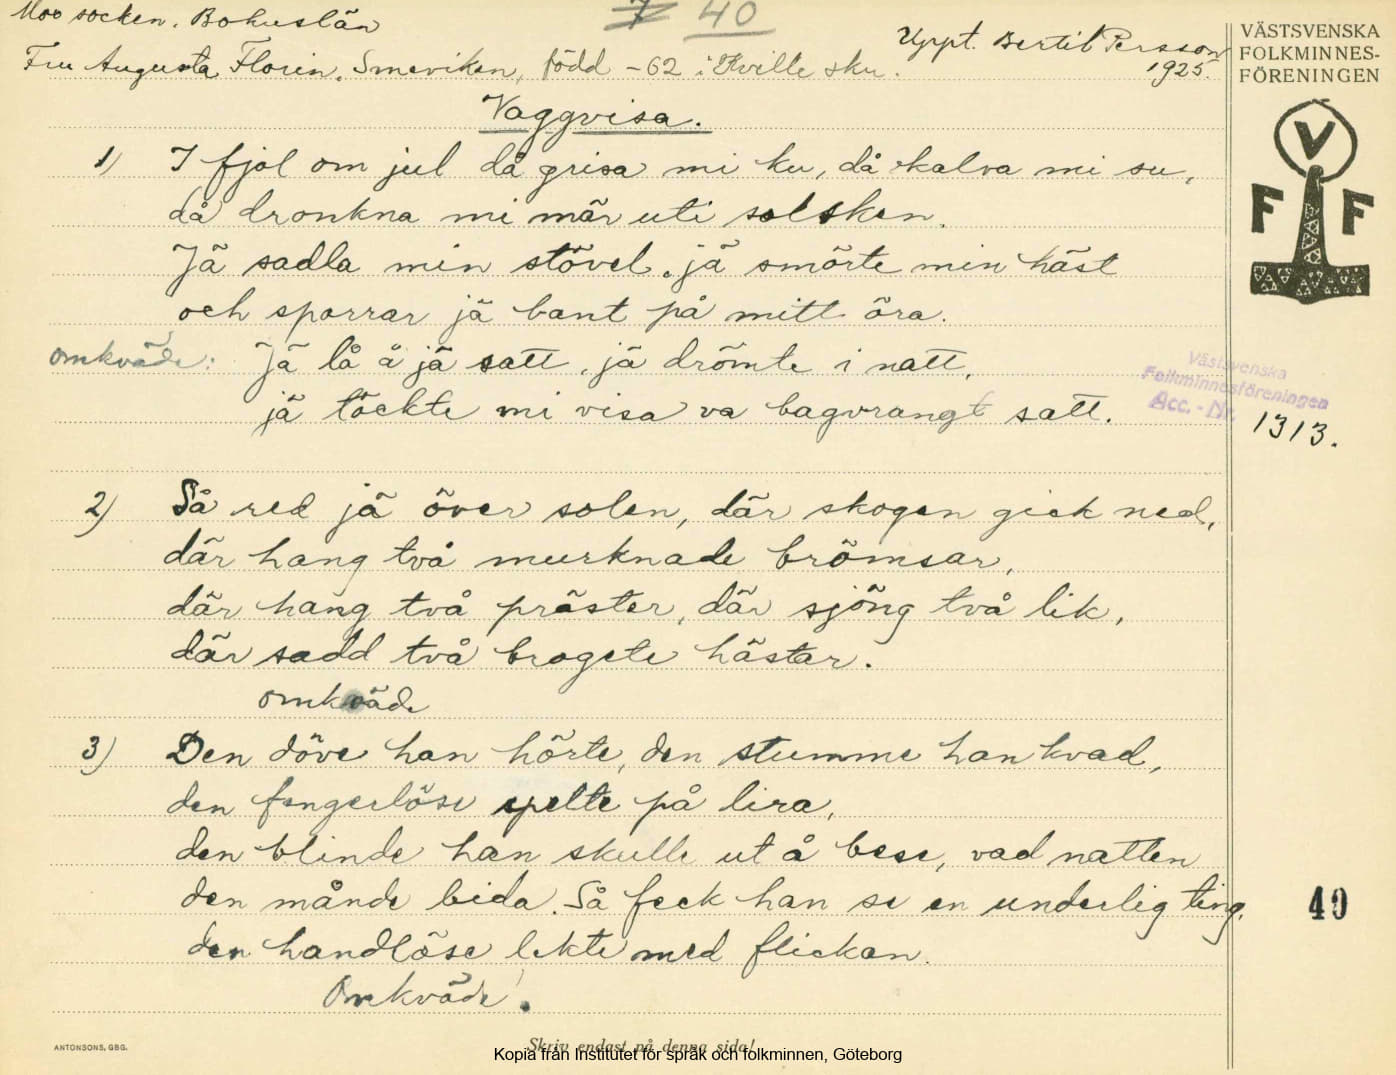 Moo socken. Bohuslän
7 40
Uppt. Bertil Persson
1925.
Fru Augusta Florin, Smeviken, född -62 i Kville skn.
VÄSTSVENSKA
FOLKMINNES-
FÖRENINGEN
V
F F
Vaggvisa.
1) I fjol om jul då grisa mi ku, då kalva mi su,
då dronkna mi mär uti solsken.
Jä sadla min stövel, jä smörte min häst
och sporrar jä bant på mitt öra.
omkväde: Jä lå å jä satt, jä drömte i natt,
jä töckte mi visa va bagvrangt satt.
Västsvenska
Folkminnesföreningen
Acc.-Nr. 1313.
2) Så red jä över solen, där skogen gick ned,
där hang två murknade brömsar,
där hang två präster, där sjöng två lik,
där sadd två brogete hästar.
omkväde
3) Den döve han hörte, den stumme han kvad,
den fengerlöse spelte på lira,
den blinde han skulle ut å bese, vad natten
den månde bida. Så feck han se en underlig ting,
den handlöse lekte med flickan.
Omkväde!
40
ANTONSONS, GBG.
Skriv endast på denna sida!
Kopia från Institutet för språk och folkminnen, Göteborg